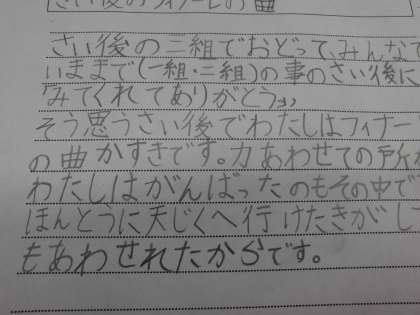 さい後のフィナーレの曲
さい後の二組でおどって、みんなで
いままで(一組・二組)の事のさい後に
みてくれてありがとう。
そう思うさい後でわたしはフィナー
の曲がすきです。力あわせての所
わたしはがんばったのもその中で
ほんとうに天じくへ行けたきがし
もあわせれたからです。